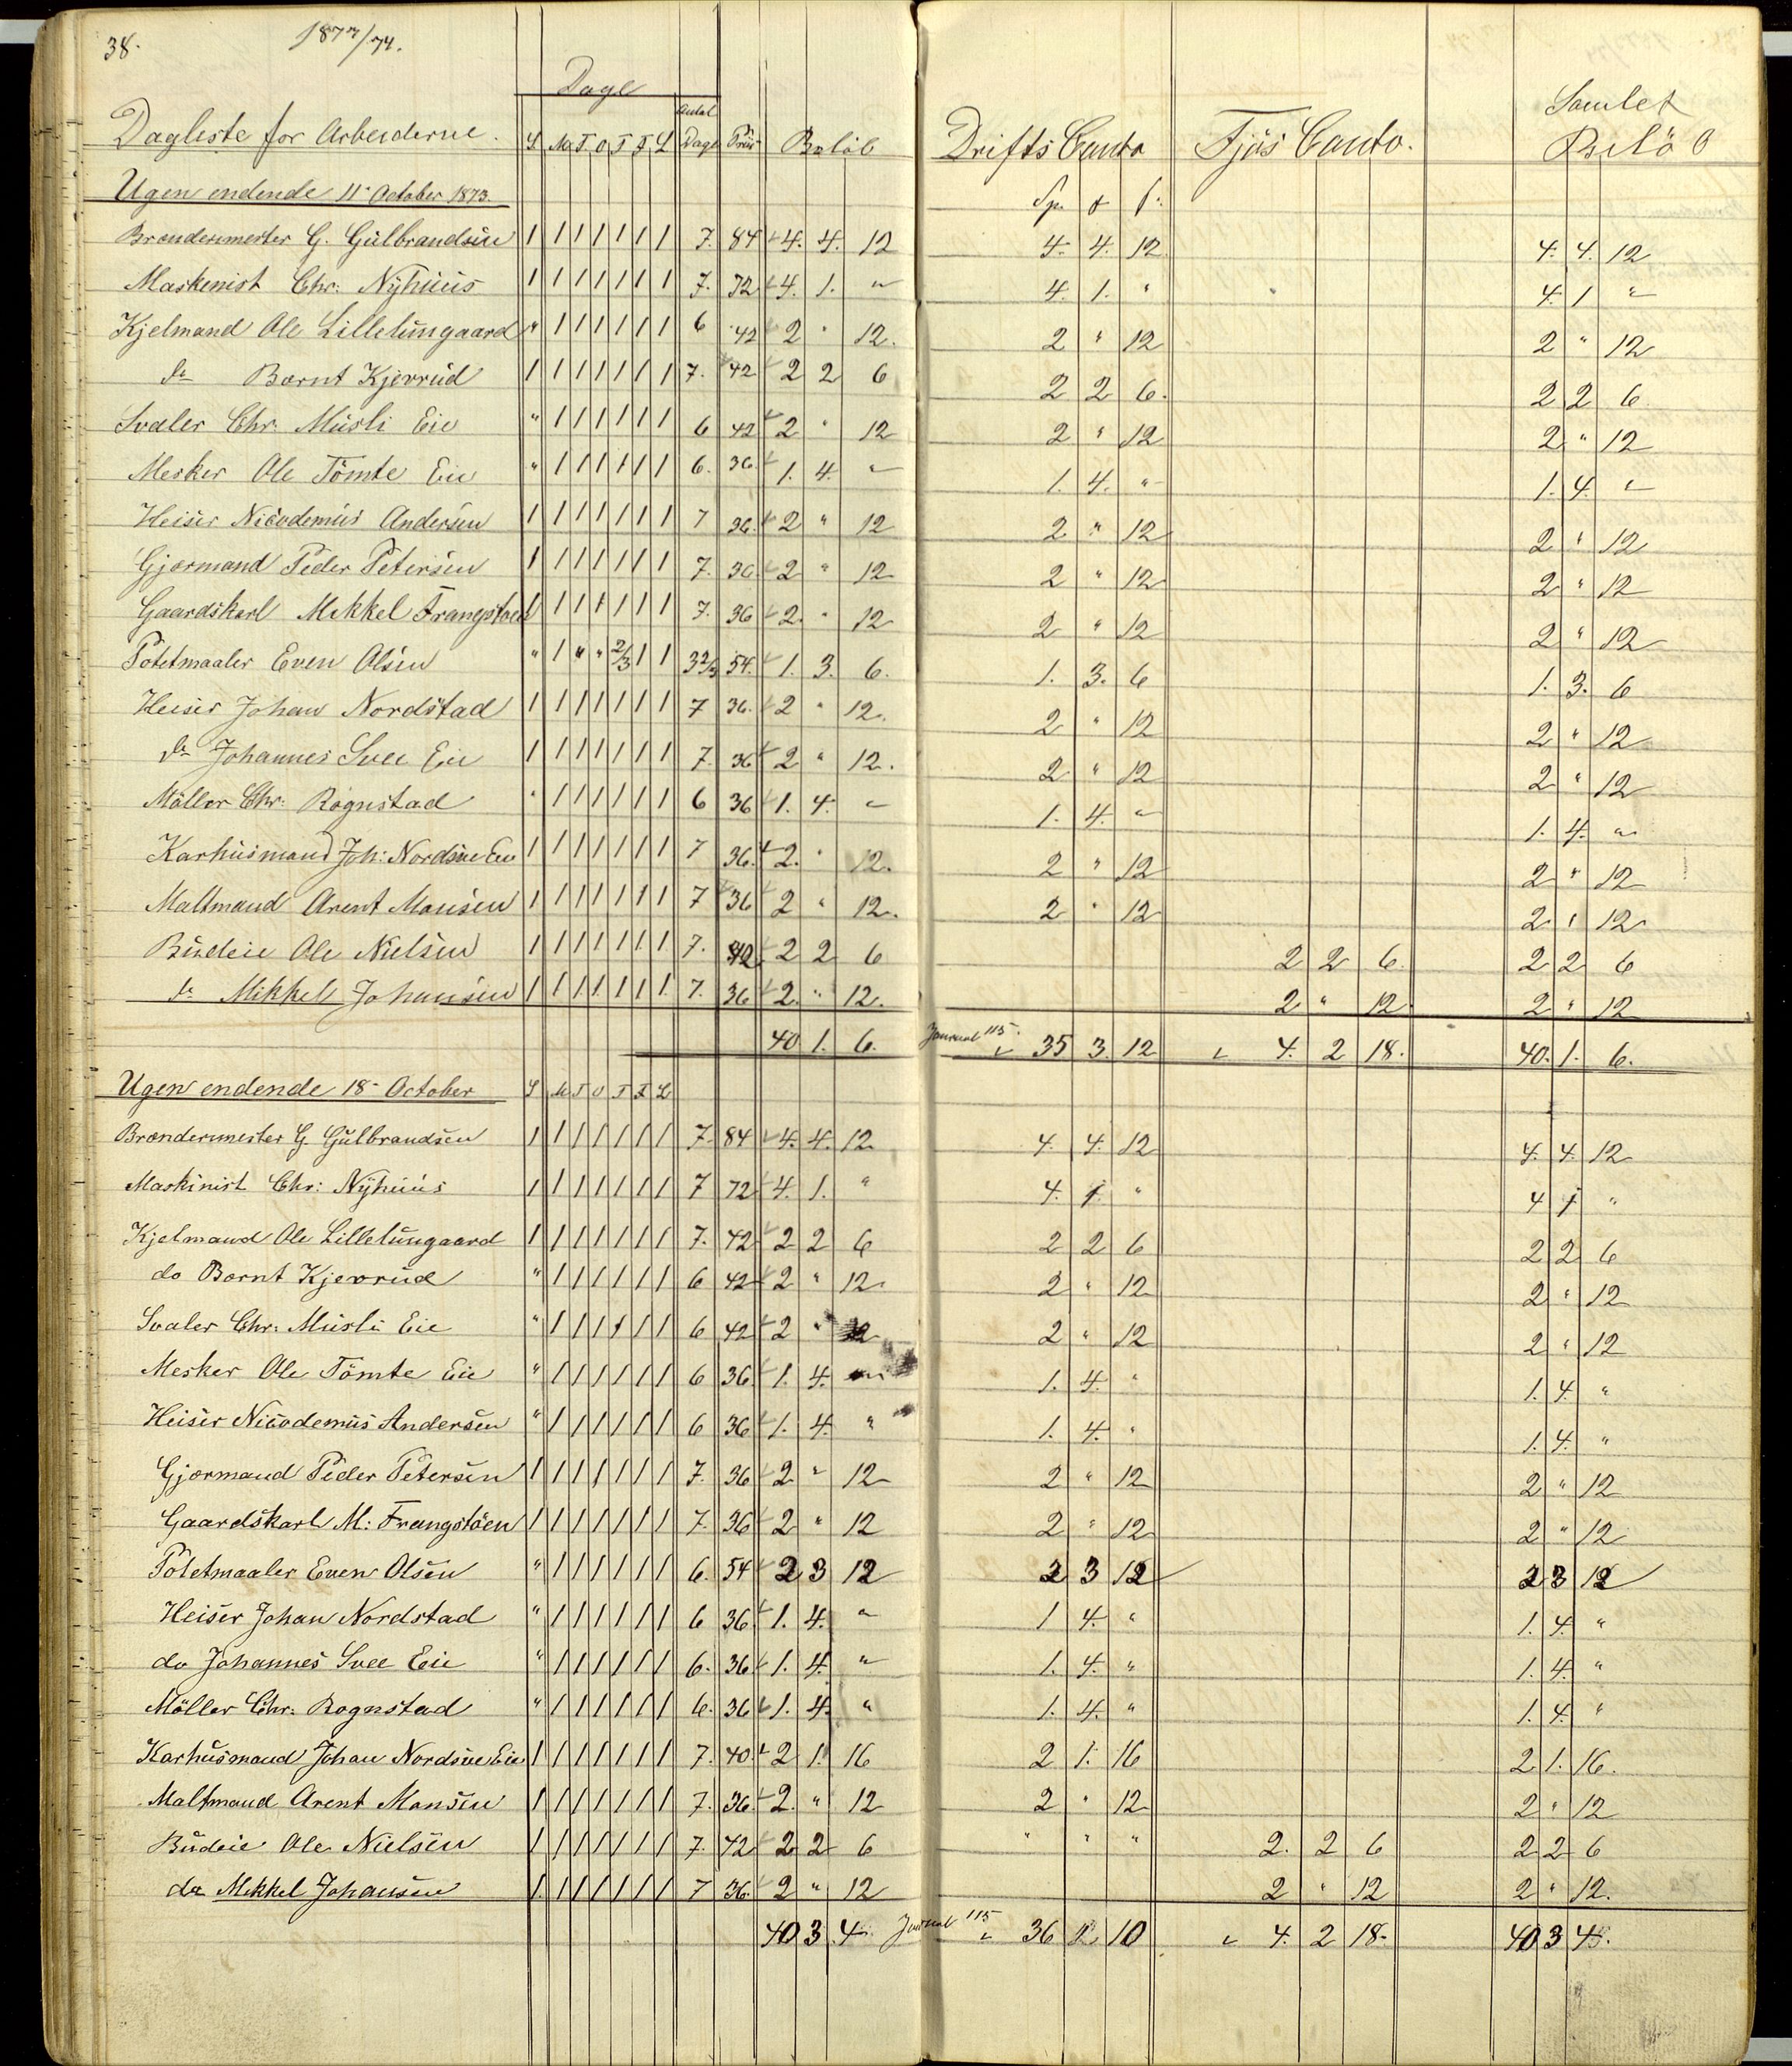 38. 1873/74.
Dage
Dagliste for Arbeiderne. S M T O T F L Antal Dage Priis Beløb Drifts Conto Fjøs Conto. Samlet Beløb
Ugen endende 11te October 1873. Sp. f s.
Brændermester G. Gulbrandsen 1 1 1 1 1 1 1 7. 84 4. 4. 12 4. 4. 12 4. 4. 12
Maskenist Chr: Nÿhuus 1 1 1 1 1 1 1 7. 72 4. 1. " 4. 1. " 4. 1 "
Kjelmand Ole Lilletungaard " 1 1 1 1 1 1 6 42 2 " 12. 2 " 12 2 " 12
do Bernt Kjevrud 1 1 1 1 1 1 1 7. 42 2 2 6 2 2 6. 2 2 6
Svaler Chr. Musli Eie " 1 1 1 1 1 1 6 42 2 " 12 2 " 12 2 " 12
Mesker Ole Tömte Eie " 1 1 1 1 1 1 6. 36. 1. 4. " 1. 4. " 1. 4. "
Heiser Nicodemus Andersen 1 1 1 1 1 1 1 7 36. 2 " 12 2 " 12 2 " 12
Gjærmand Peder Petersen 1 1 1 1 1 1 1 7. 36 2 " 12 2 " 12 2 " 12
Gaardskarl Mikkel Frangstøen 1 1 1 1 1 1 1 7. 36 2. " 12 2 " 12 2 " 12
Potetmaaler Even Olsen " 1 " " 2/3 1 1 3 2/3 54. 1. 3. 6. 1. 3. 6 1. 3. 6
Heiser Johan Nordstad 1 1 1 1 1 1 1 7 36. 2 " 12. 2 " 12 2 " 12
do Johannes Svee Eie 1 1 1 1 1 1 1 7. 36 2 " 12. 2 " 12 2 " 12
Möller Chr: Rognstad " 1 1 1 1 1 1 6 36 1. 4. " 1. 4. " 1. 4. "
Karhusmand Joh: Nordsve Eie 1 1 1 1 1 1 1 7 36. 2. " 12. 2 " 12 2 " 12
Maltmand Arent Monsen 1 1 1 1 1 1 1 7 36 2 " 12. 2 " 12 2 " 12
Budeie Ole Nielsen 1 1 1 1 1 1 1 7. 42 2 2 6 2 2 6. 2 2 6
do Mikkel Johansen 1 1 1 1 1 1 1 7. 36 2. " 12. 2 " 12 2 " 12
40 1. 6. Journal 115. 35 3 12 4. 2 18. 40. 1. 6.
Ugen endende 18de October S M T O T F L
Brændermester G. Gulbrandsen 1 1 1 1 1 1 1 7. 84 4. 4. 12 4. 4. 12 4. 4. 12
Maskinist Chr: Nÿhuus 1 1 1 1 1 1 1 7 72 4. 1. " 4. 1. " 4 1 "
Kjelmand Ole Lilletungaard 1 1 1 1 1 1 1 7. 42 2 2 6 2 2 6 2 2 6
do Bernt Kjevrud " 1 1 1 1 1 1 6 42 2 " 12. 2 " 12 2 " 12
Svaler Chr: Musli Eie " 1 1 1 1 1 1 6 42 2 " 12 2 " 12 2 " 12
Mesker Ole Tömte Eie " 1 1 1 1 1 1 6 36. 1. 4. " 1. 4. " 1. 4. "
Heiser Nicodemus Andersen " 1 1 1 1 1 1 6 36 1. 4. " 1. 4. " 1. 4. "
Gjærmand Peder Petersen 1 1 1 1 1 1 1 7. 36 2 " 12 2 " 12 2 " 12
Gaardskarl M: Frangstøen 1 1 1 1 1 1 1 7. 36 2 " 12 2 " 12 2 " 12
Potetmaaler Even Olsen " 1 1 1 1 1 1 6. 54 2 3 12 2 3 12 2 3 12
Heiser Johan Nordstad " 1 1 1 1 1 1 6 36 1. 4. " 1 4. " 1. 4. "
do Johannes Svee Eie " 1 1 1 1 1 1 6. 36 1. 4. " 1. 4. " 1. 4. "
Möller Chr: Rognstad " 1 1 1 1 1 1 6. 36 1. 4. " 1. 4. " 1. 4. "
Karhusmand Johan Nordsve Eie 1 1 1 1 1 1 1 7. 40. 2 1. 16 2 1. 16 2. 1. 16.
Maltmand Arent Monsen 1 1 1 1 1 1 1 7. 36. 2. " 12 2 " 12 2 " 12
Budeie Ole Nielsen 1 1 1 1 1 1 1 7. 42 2 2 6 " " " 2. 2 6 2 2 6
do Mikkel Johansen 1 1 1 1 1 1 1 7 36. 2 " 12 2 " 12 2 " 12.
40 3 4 Journal 115 36 " 10 4. 2 18. 40 3 4.